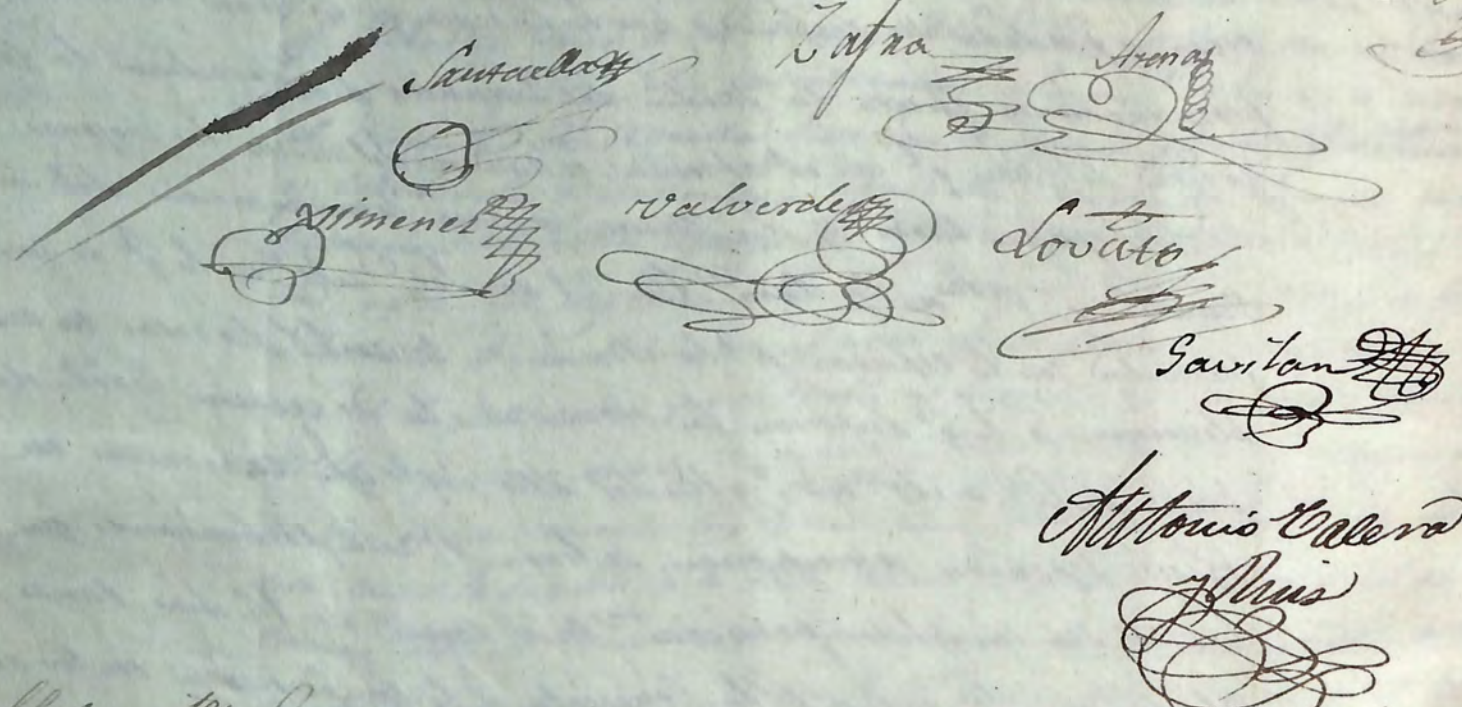 Santaella Zafra Arenas
Ximenez Valverde Lovato
Gavilan
Antonio Calera
y Ruis